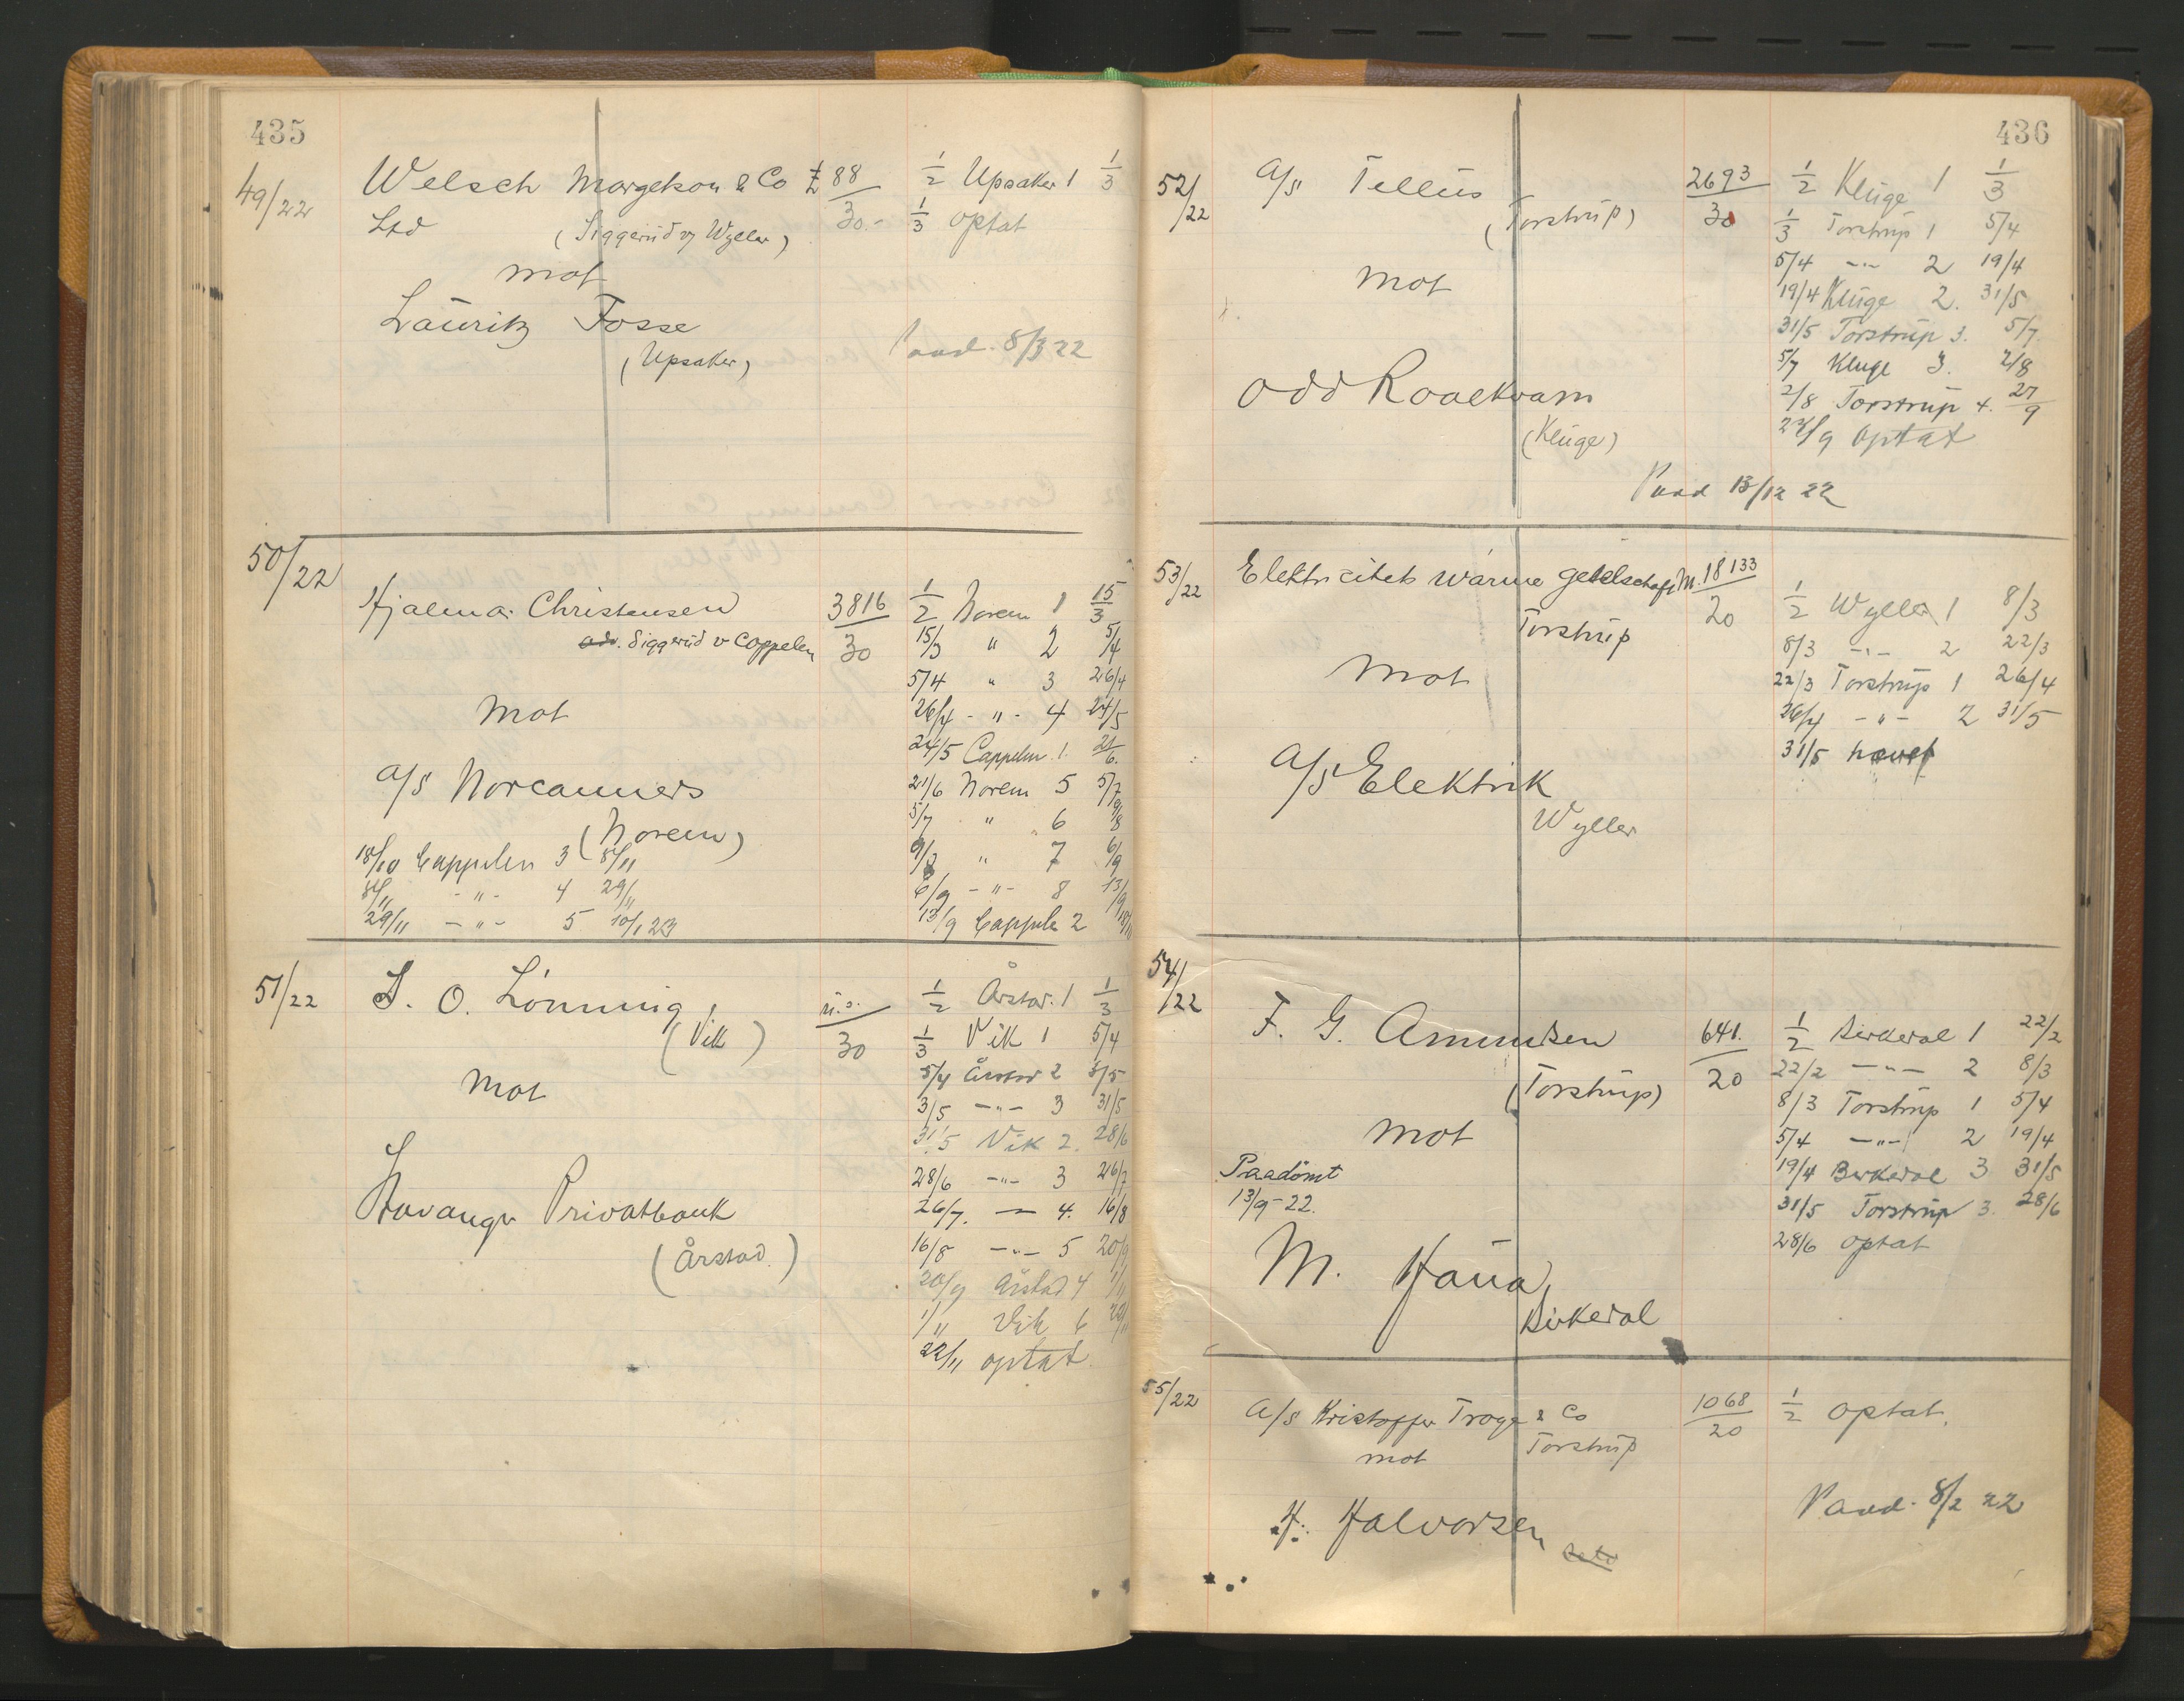 435
49/22 Welsch Margetson & Co £ 88 1/2 Upsaker 1 1/3
Ltd (Siggerud v/ Wyller) 30.- 1/3 optat
mot
Lauritz Fosse
(Upsaker) Paad. 8/3 22
50/22
Hjalmar Christensen 3816 1/2 Norem 1 15/3
adv. Siggerud v Cappelen 30 15/3 " 2 5/4
5/4 " 3 26/4
mot 26/4 - " - 4 24/5
24/5 Cappelen 1. 21/6.
a/s Norcanners 21/6 Norem 5 5/7
5/7 " 6 9/8
(Norem)
18/10 Cappelen 3 8/11 9/8 " 7 6/9
8/11 - " - 4 29/11 6/9 - " - 8 13/9
29/11 - " - 5 10/1 23 13/9 Cappelen 2 18/10
51/22 S. O. Lönning, u.s. 1/2 Årstad. 1 1/3
(Vik) 30 1/3 Vik 1 5/4
mot 5/4 Årstad 2 3/5
3/5 - " - 3 31/5
31/5 Vik 2. 28/6
28/6 - " - 3 26/7
Stavanger Privatbank 26/7. — 4. 16/8
(Årstad.) 16/8 - " - 5 20/9
20/9 Årstad 4 1/11
1/11 Vik 6 22/11
22/11 optat
436
52/22 a/s Tellus 2693 1/2 Kluge 1 1/3
(Torstrup) 30 1/3 Torstrup 1 5/4
5/4 - " - 2 19/4
mot 19/4 Kluge 2. 31/5
31/5 Torstrup 3. 5/7.
5/7 Kluge 3. 2/8
Odd Raaekvam 2/8 Torstrup 4. 27/9
(Kluge) 27/9 optat
Paad 13/12 22
53/22 Elektricitets wärme geselschaft M. 18133 1/2 Wyller 1 8/3
Torstrup 20 8/3 - " - 2 22/3
mot 22/3 Torstrup 1 26/4
26/4 - " - 2 31/5
a/s Elektrik 31/5 hævet
Wyller
54/22
F. G. Amundsen 641. 1/2 Birkeval 1 22/2
(Torstrup) 20 22/2 - " - 2 8/3
8/3 Torstrup 1 5/4
mot 5/4 - " - 2 19/4
Paadömt 19/4 Birkeval 3 31/5
13/9-22. 31/5 Torstrup 3. 28/6
28/6 optat
M. Haua,
Birkeval
55/22 a/s Kristoffer Troge & Co 1068 1/2 optat.
mot Torstrup 20
H. Halvorsen Paad. 8/2 22